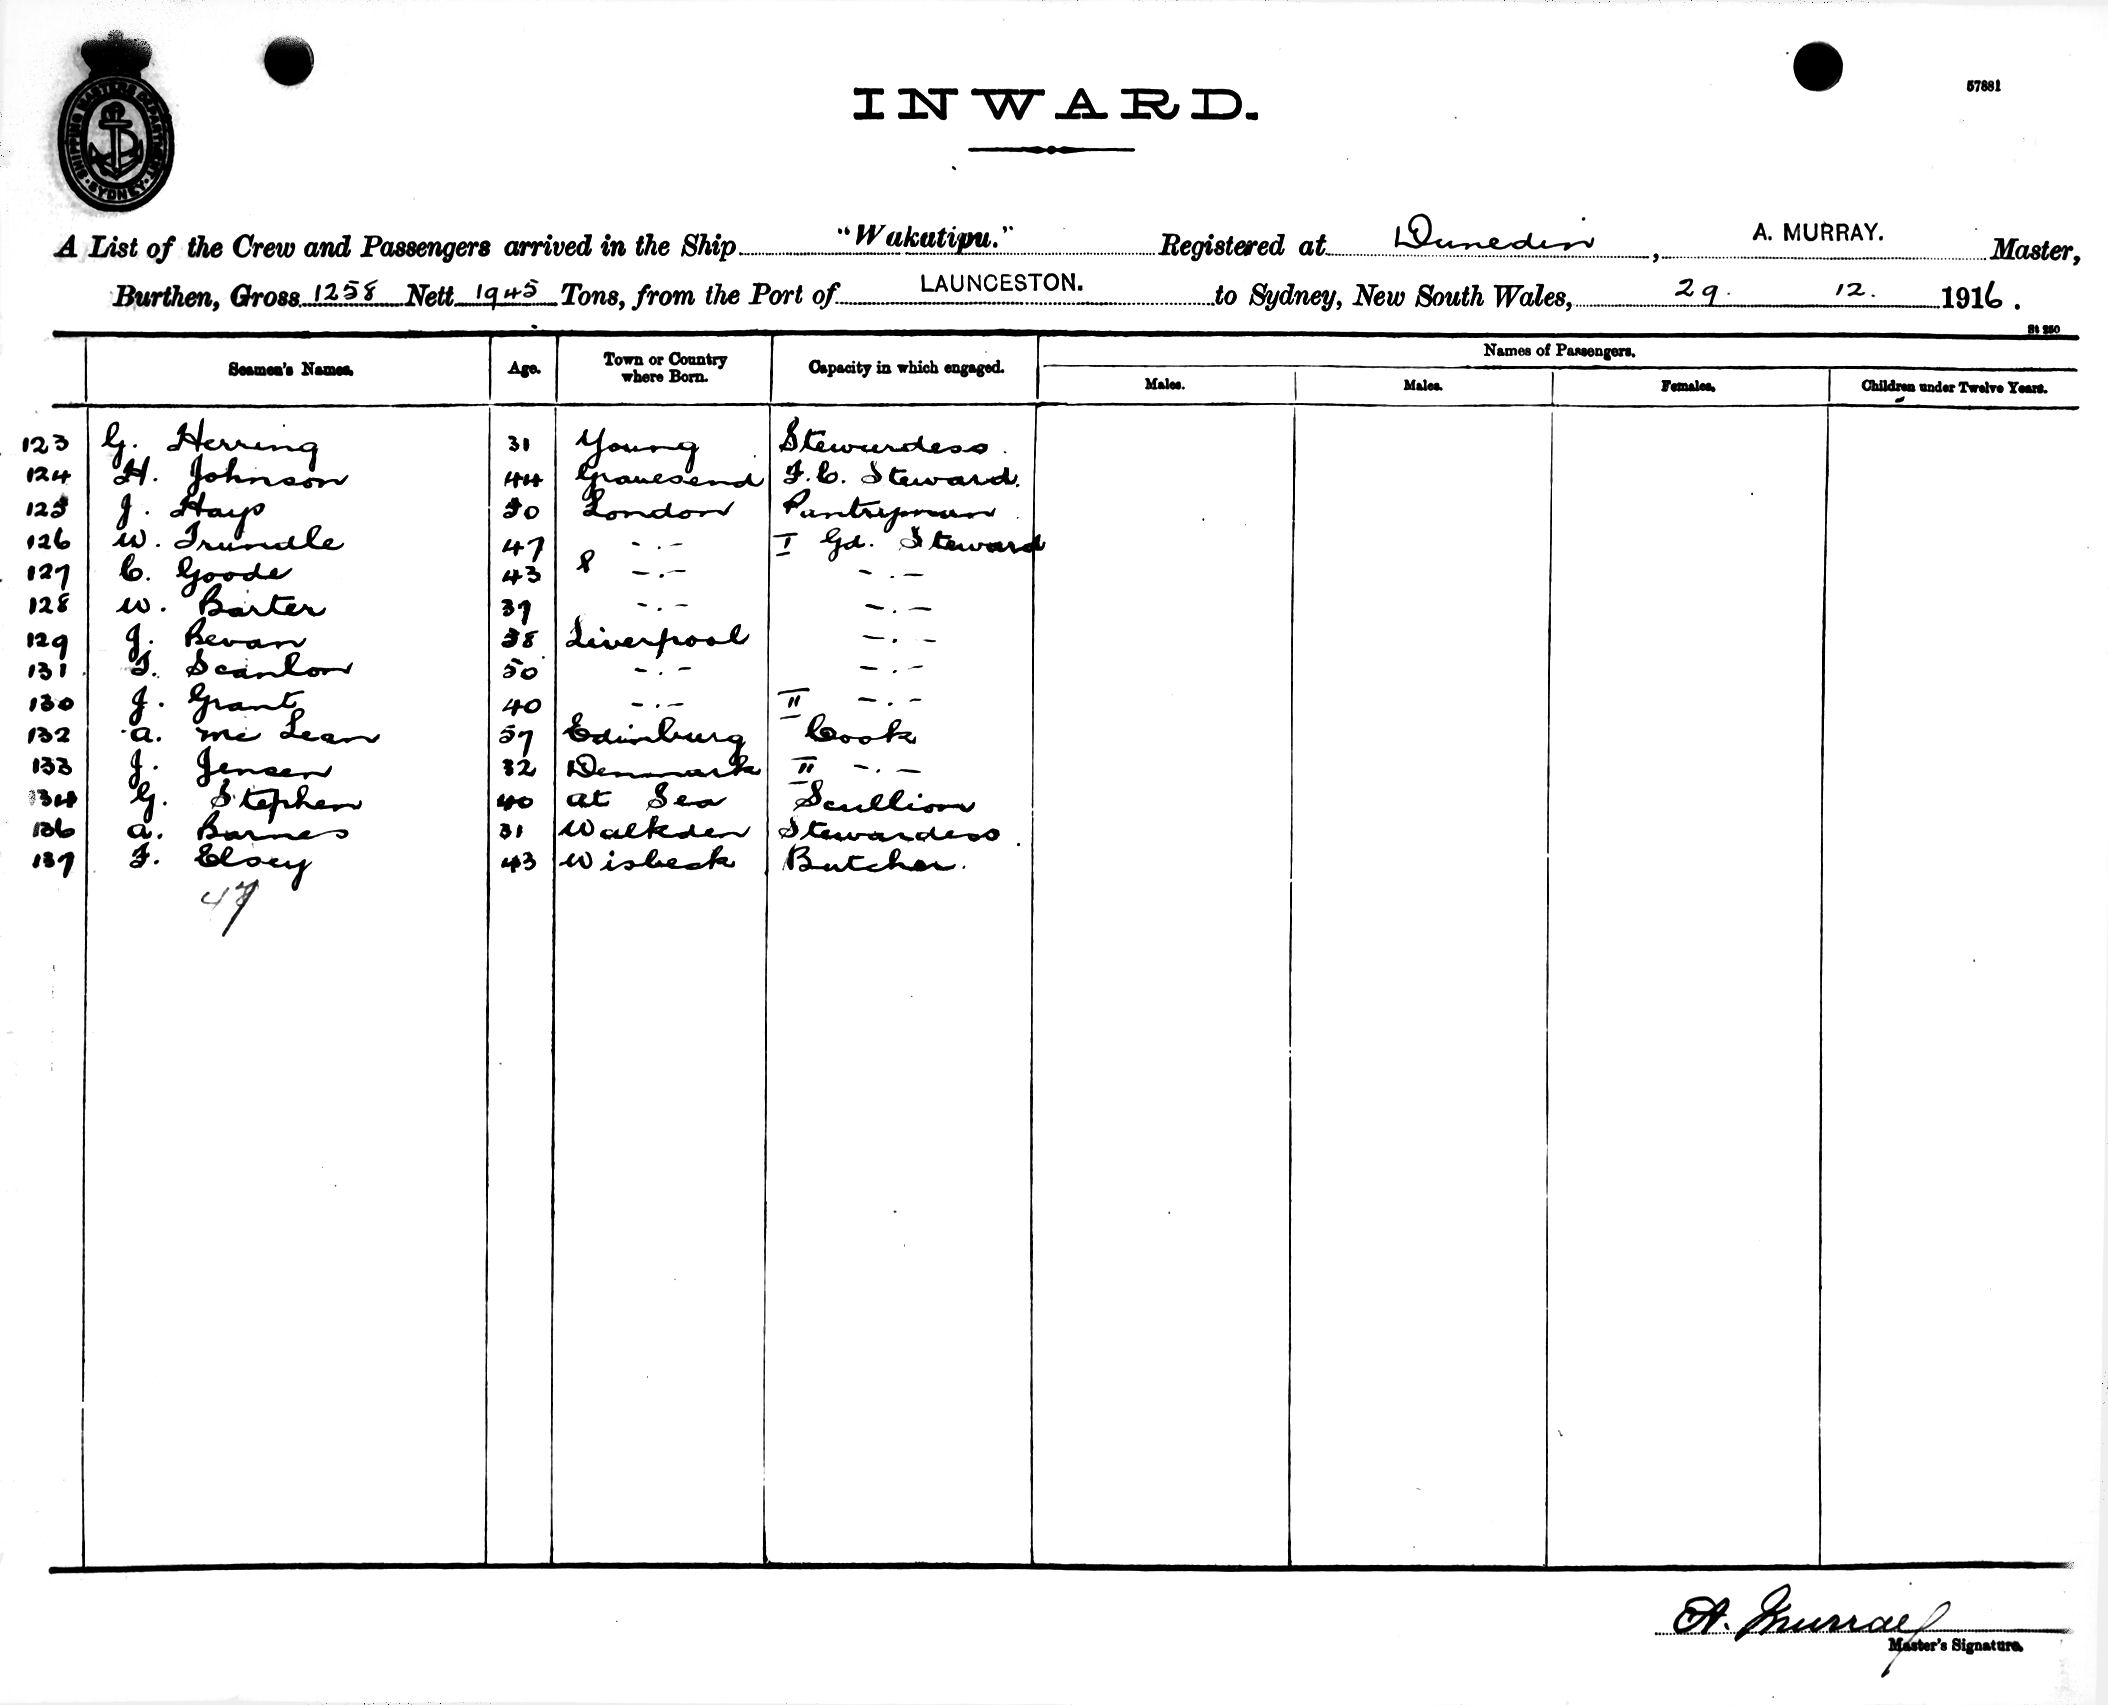 SHIPPING MASTERS DEPARTMENT
SYDNEY
57881
INWARD.
A List of the Crew and Passengers arrived in the Ship "Wakatipu." Registered at Dunedin, A. MURRAY. Master,
Burthen, Gross 1258 Nett 1945 Tons, from the Port of LAUNCESTON. to Sydney, New South Wales, 29. 12. 1916.
St 250
Seamen's Names. Age. Town or Country where Born. Capacity in which engaged. Names of Passengers.
Males. Males. Females. Children under Twelve Years.
123 G. Herring 31 Young Stewardess.
124 H. Johnson 44 Gravesend F.C. Steward.
125 J. Hays 30 London Pantryman
126 W. Trundle 47 -.- I Gd. Steward
127 C. Goode 43 -.- -.-
128 W. Barter 39 -.- -.-
129 J. Bevan 38 Liverpool -.-
131 T. Scanlon 50 -.- -.-
130 J. Grant 40 -.- II -.-
132 A. Mc Lean 57 Edinburg Cook
133 J. Jensen 32 Denmark II -.-
134 G. Stephen 40 at Sea Scullion
136 A. Barnes 31 Walkden Stewardess.
137 F. Elsey 43 Wisbeck Butcher.
A. Murray
Master's Signature.